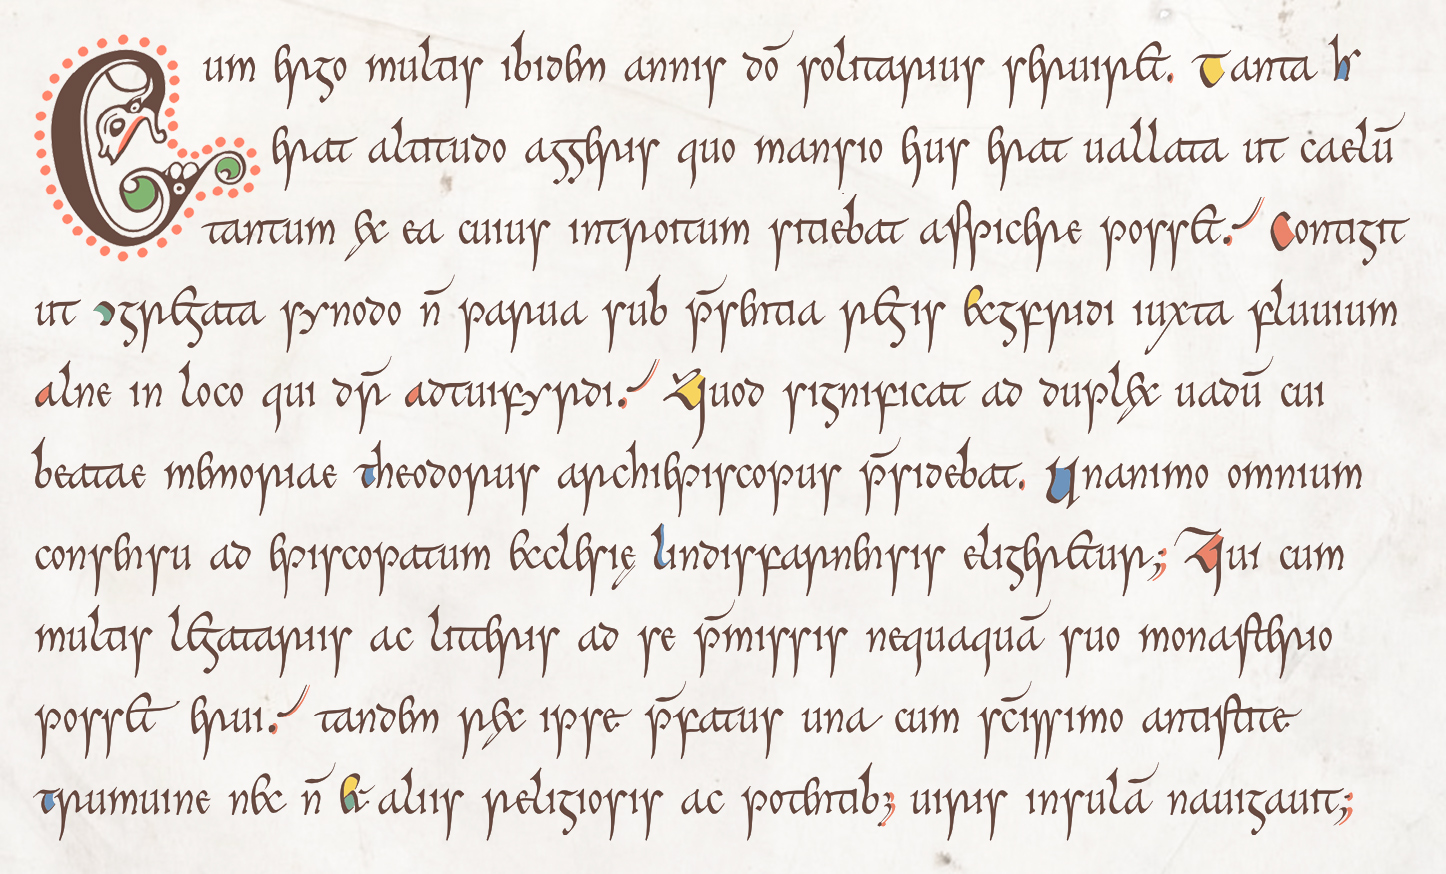 Cum ergo multis ibidem annis dō solitarius seruiret. Tanta er
erat altitudo aggeris quo mansio eius erat uallata ut caelū
tantum ex ea cuius introitum sitiebat aspicere posset. Contigit
ut ɔgregata synodo n̄ parua sub p̄sentia regis ecgfridi iuxta fluuium
alne in loco qui dr̄ adtuifyrdi. Quod significat ad duplex uadū cui
beatae memoriae theodorus archiepiscopus p̄sidebat. Unanimo omnium
consensu ad episcopatum ecclesię lindisfarnensis eligeretur; Qui cum
multis legatariis ac litteris ad se p̄missis nequaquā suo monasterio
posset erui. tandem rex ipse p̄fatus una cum sc̄issimo antistite
trumuine nec n̄ et aliis religiosis ac potentib; uiris insulā nauigauit;